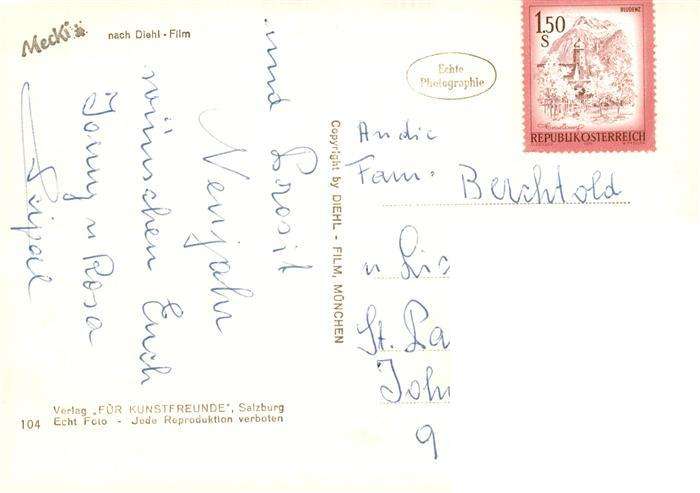 Mecki
nach Diehl - Film
und Prosit
Neujahr
wünschen Euch
Jonny u Rosa
Echte
Photographie
1.50
S
BLUDENZ
REPUBLIK ÖSTERREICH
Copyright by DIEHL - FILM, MÜNCHEN
An die
Fam. Berchtold
u Lis
St. Pa
Joh
9
Verlag „FÜR KUNSTFREUNDE", Salzburg
104 Echt Foto - Jede Reproduktion verboten